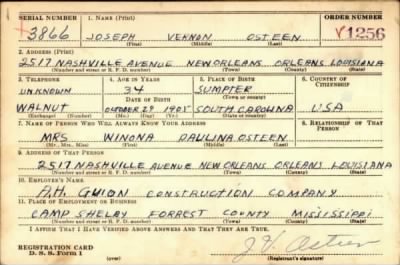 SERIAL NUMBER 1. NAME (Print) ORDER NUMBER
3866 JOSEPH VERNON OSTEEN V1256
(First) (Middle) (Last)
2. ADDRESS (Print)
2517 NASHVILLE AVENUE NEW ORLEANS, ORLEANS, LOUISIANA
(Number and street or R. F. D. number) (Town) (County) (State)
3. TELEPHONE 4. AGE IN YEARS 5. PLACE OF BIRTH 6. COUNTRY OF CITIZENSHIP
UNKNOWN 34 SUMPTER
DATE OF BIRTH (Town or county)
WALNUT OCTOBER 29 1905 SOUTH CAROLINA USA
(Exchange) (Number) (Mo.) (Day) (Yr.) (State or country)
7. NAME OF PERSON WHO WILL ALWAYS KNOW YOUR ADDRESS 8. RELATIONSHIP OF THAT PERSON
MRS WINONA PAULINA OSTEEN
(Mr., Mrs., Miss) (First) (Middle) (Last)
9. ADDRESS OF THAT PERSON
2517 NASHVILLE AVENUE NEW ORLEANS, ORLEANS LOUISIANA
(Number and street or R. F. D. number) (Town) (County) (State)
10. EMPLOYER'S NAME
GUION CONSTRUCTION COMPANY
11. PLACE OF EMPLOYMENT OR BUSINESS
CAMP SHELBY FORREST COUNTY MISSISSIPPI
(Number and street or R. F. D. number) (Town) (County) (State)
I AFFIRM THAT I HAVE VERIFIED ABOVE ANSWERS AND THAT THEY ARE TRUE.
REGISTRATION CARD
D. S. S. Form 1 (over) J V Osteen
(Registrant's signature)